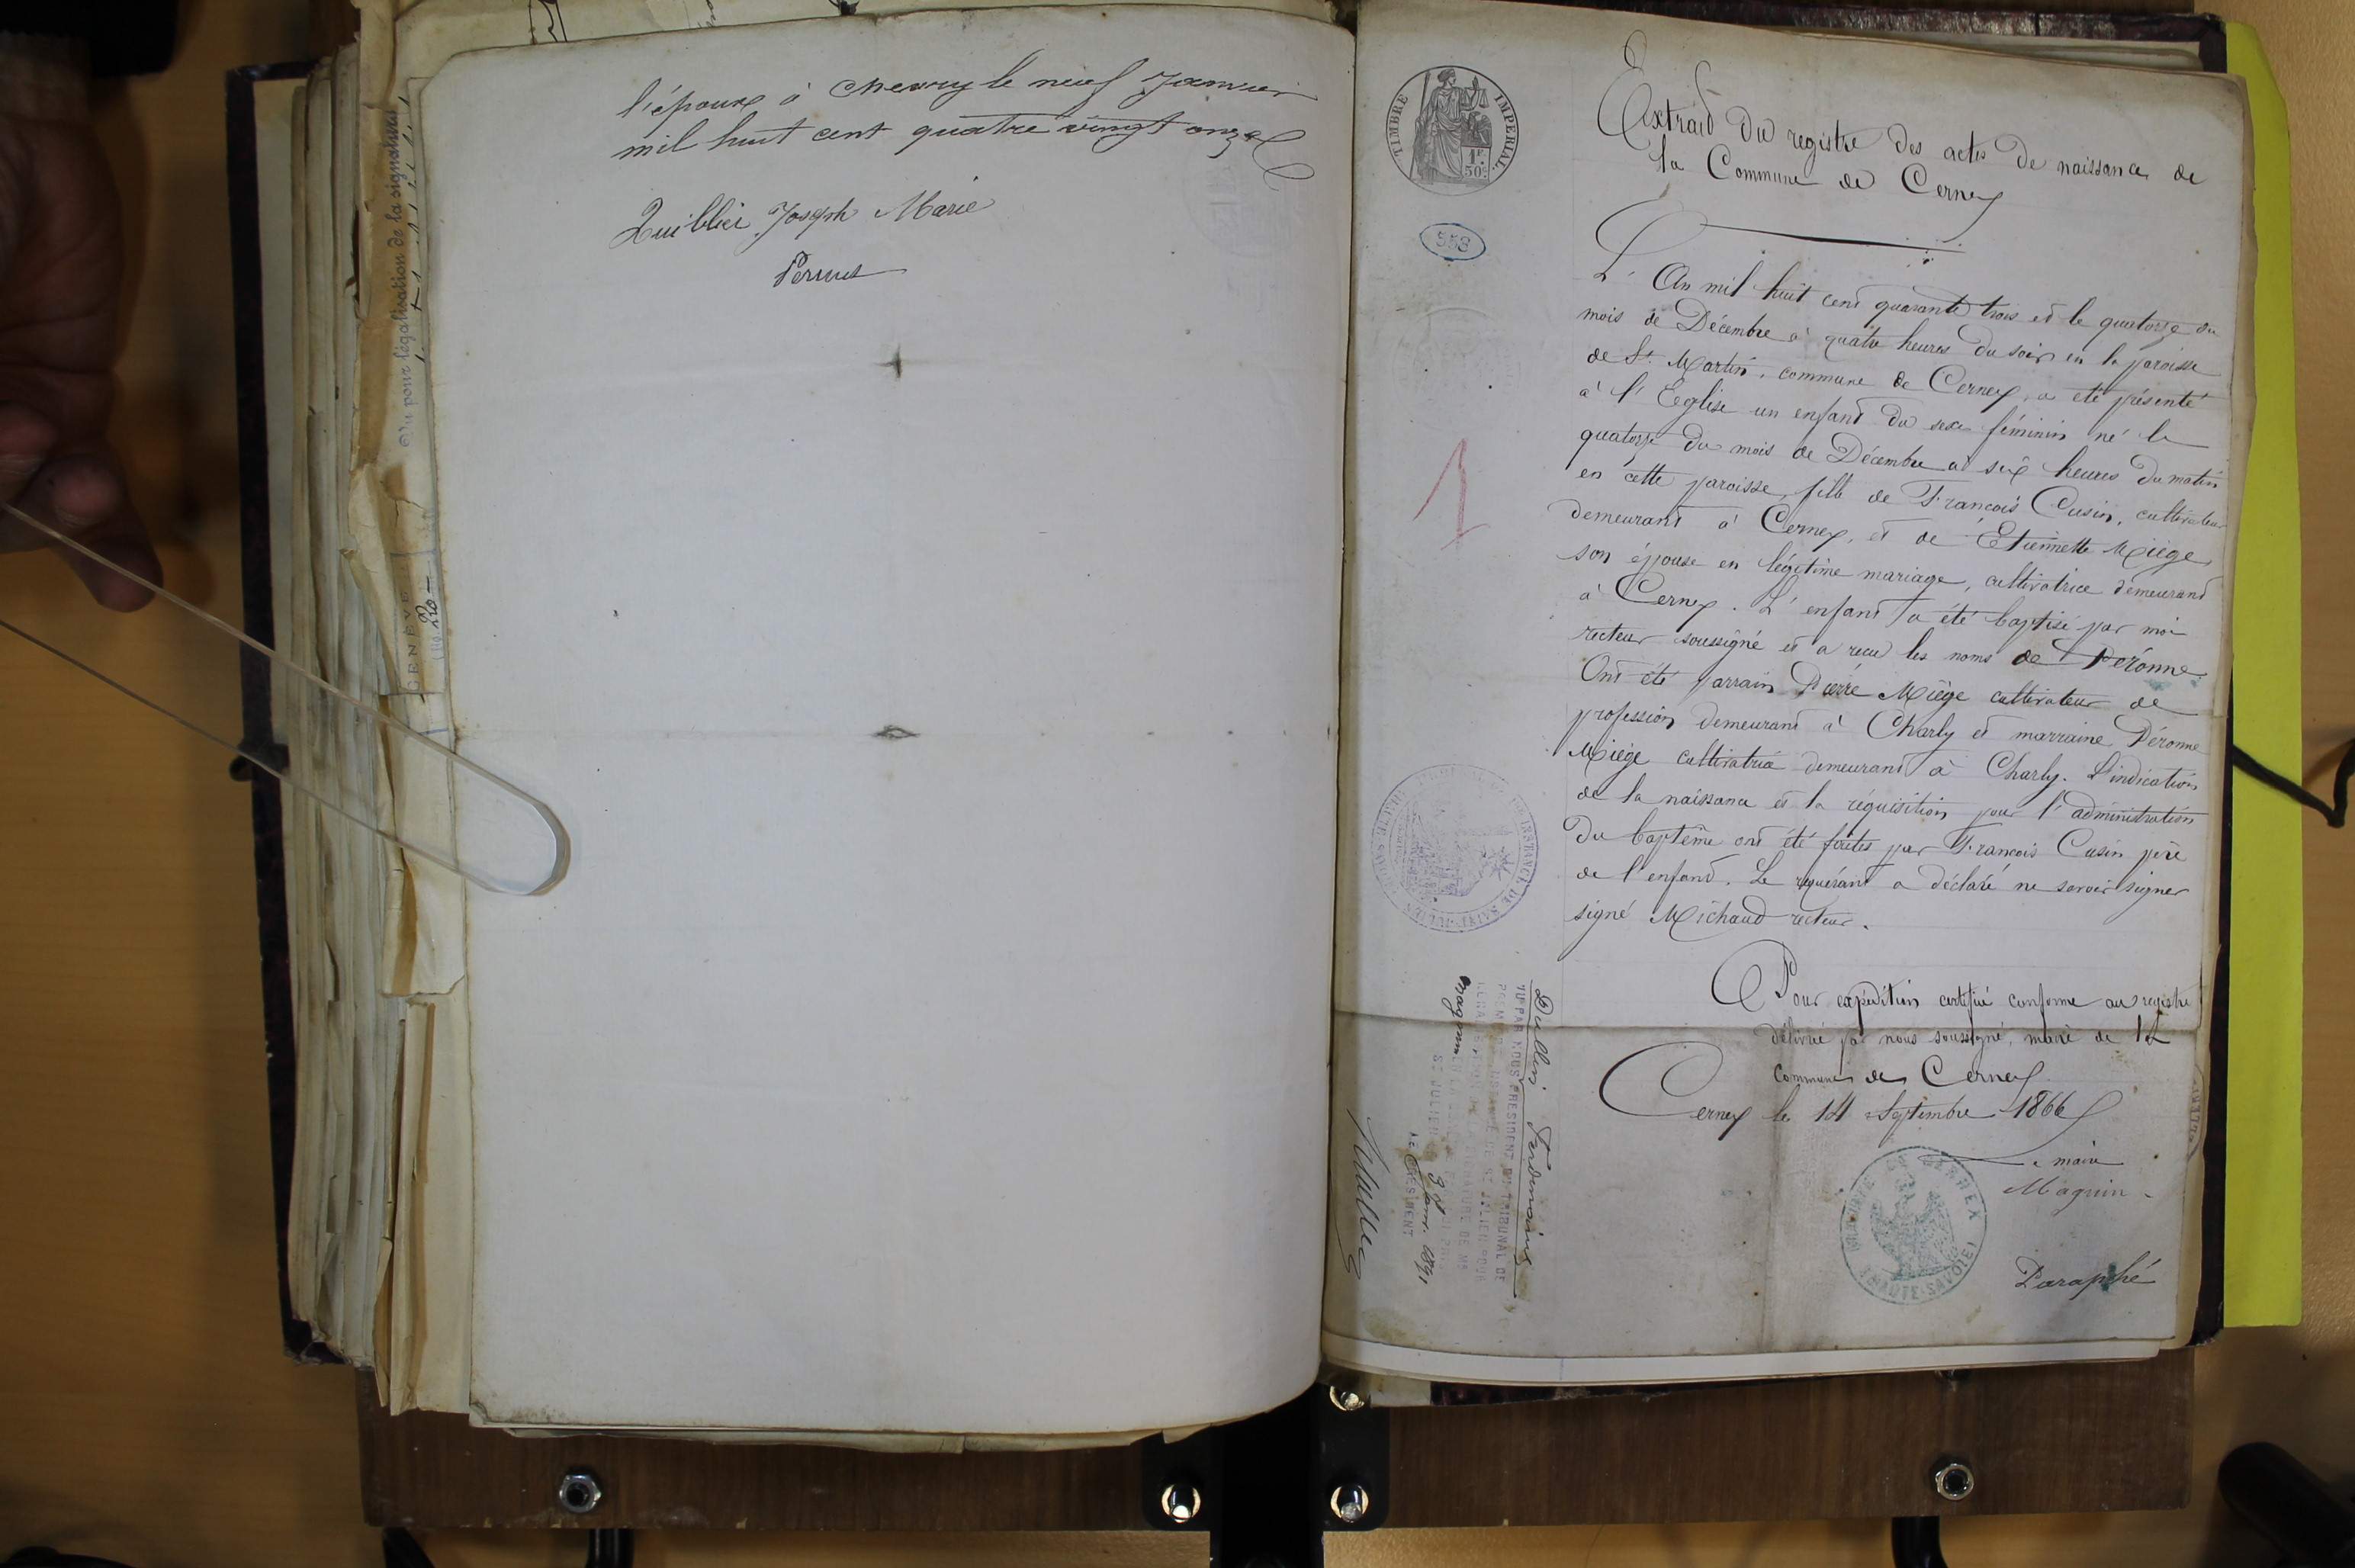 l'épouse à Chevry le neuf Janvier
mil huit cent quatre vingt onze
Quiblier Joseph Marie
Perrus
Vu pour légalisation de la signature
GENÈVE
20
TIMBRE IMPERIAL
1F.
50c.
Extrait du registre des actes de naissance de
la Commune de Cernex
L'An mil huit cent quarante trois et le quatorze du
mois de Décembre à quatre heures du soir en la paroisse
de St. Martin, commune de Cernex, a été présenté
à l'Eglise un enfant du sexe féminin né le
quatorze du mois de Décembre à six heures du matin
en cette paroisse, fille de François Cusin, cultivateur
demeurant à Cernex, et de Etiennette Miège,
son épouse en légitime mariage, cultivatrice demeurant
à Cernex. L'enfant a été baptisé par moi
recteur soussigné et a reçu les noms de Péronne.
Ont été parrain Pierre Miège cultivateur de
profession demeurant à Charly et marraine Péronne
Miège cultivatrice demeurant à Charly. L'indication
de la naissance et la réquisition pour l'administration
du baptême ont été faites par François Cusin père
de l'enfant. Le requérant a déclaré ne savoir signer
signé Michaud recteur.
Pour expédition certifié conforme au registre
délivrée par nous soussigné, maire de la
commune de Cernex
Cernex le 14 Septembre 1866
Le maire
Magnin
Paraphé
MAIRIE DE CERNEX
(HAUTE-SAVOIE)
INSTANCE DE SAINT-JULIEN
Dullin Ferdinand
VU PAR NOUS PRESIDENT DU TRIBUNAL DE
SIGNATURE DE MR
Magnin
ST JULIEN
3 Janv. 1891
LE PRESIDENT